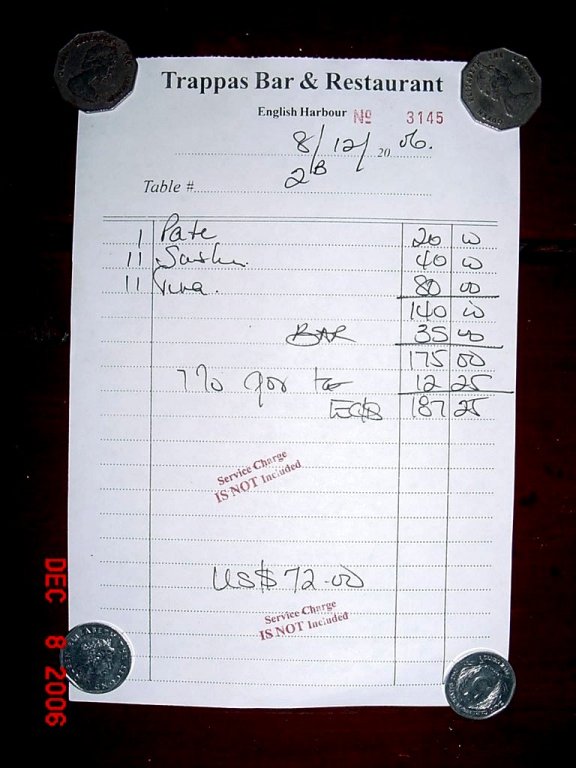 Trappas Bar & Restaurant
English Harbour Nº 3145
8/12/ 20 06.
Table # 2B
1 Pate 20 00
11 Sushi. 40 00
11 Tuna. 80 00
140 00
BAR 35 00
175 00
7% gov tax 12 25
EC$ 187 25
Service Charge
IS NOT Included
US$ 72.00
Service Charge
IS NOT Included
DEC 8 2006